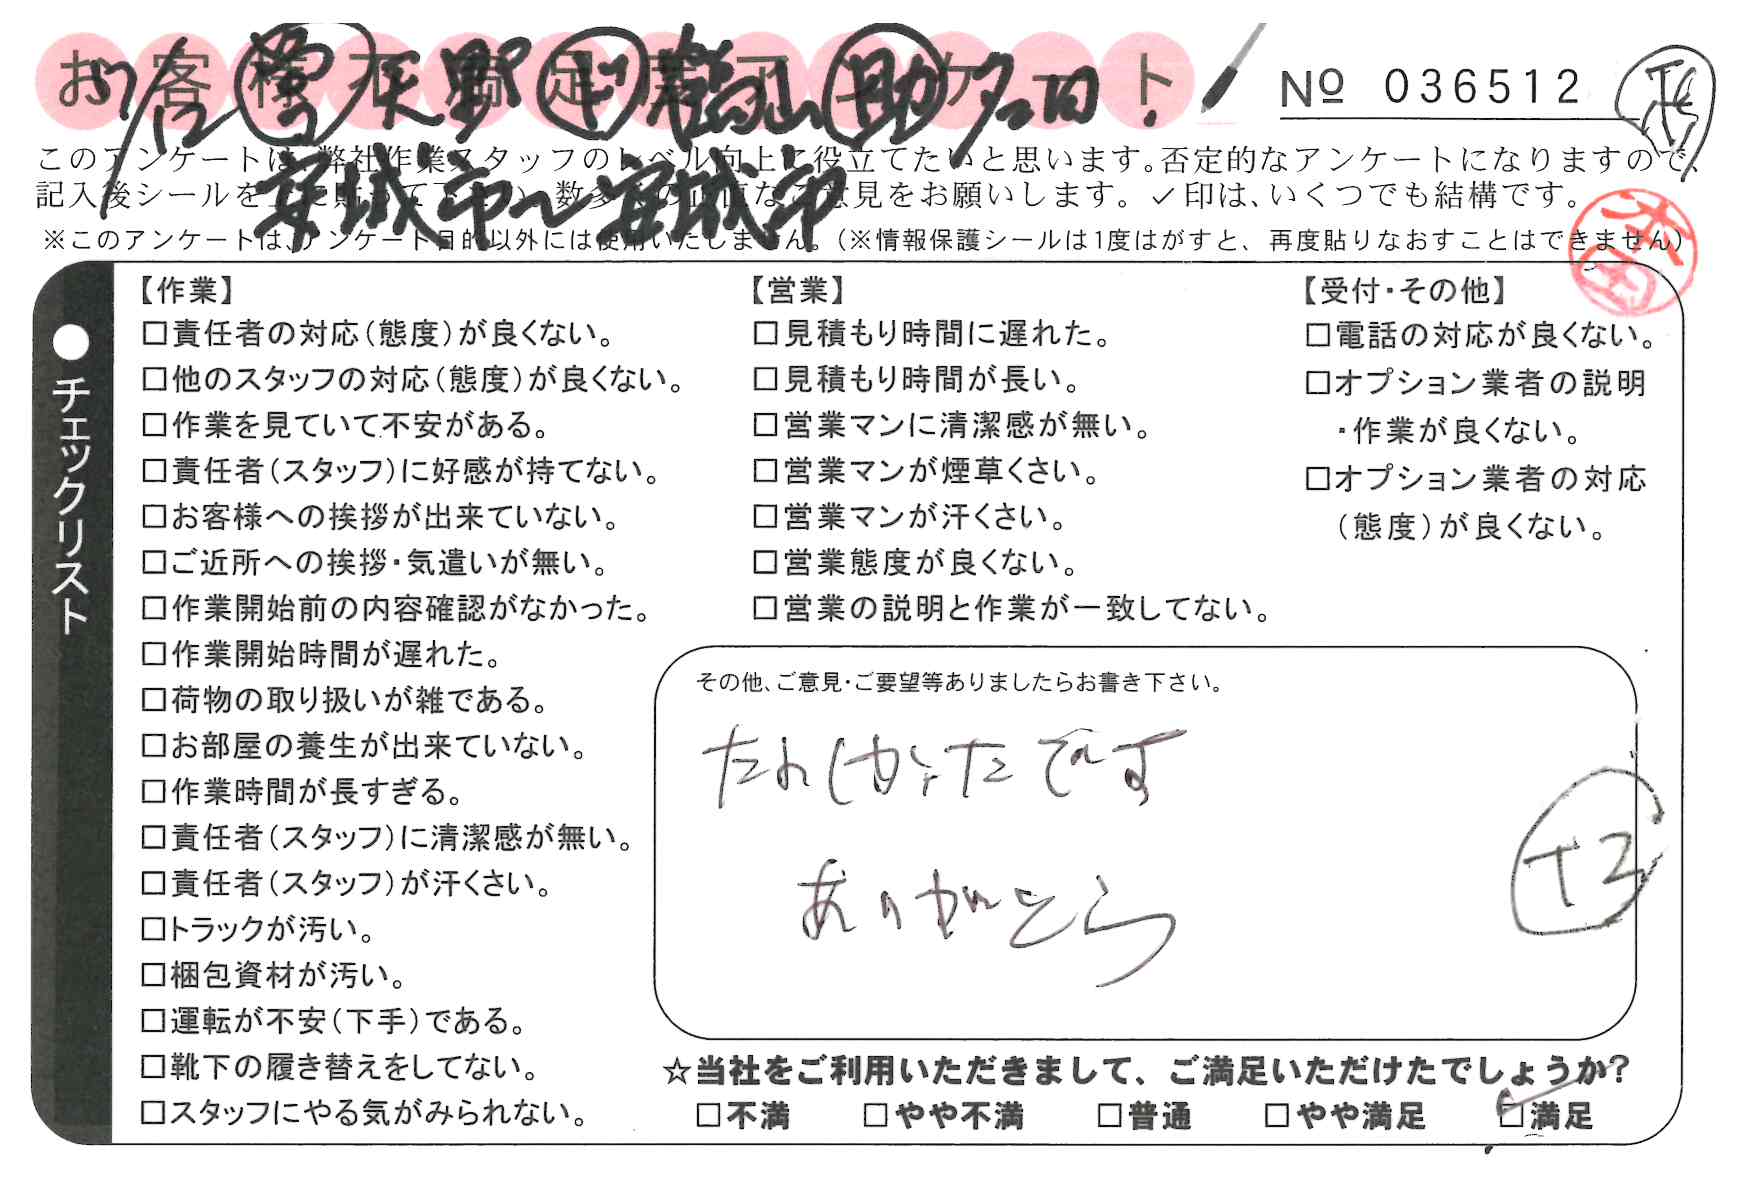 お客様不満足度アンケート
営 矢野 助
№ 036512
このアンケートは、弊社作業スタッフのレベル向上に役立てたいと思います。否定的なアンケートになりますので、
記入後シールを上に貼って下さい。数多くの正直なご意見をお願いします。✓印は、いくつでも結構です。
安城市〜安城市
※このアンケートは、アンケート目的以外には使用いたしません。(※情報保護シールは1度はがすと、再度貼りなおすことはできません)
●チェックリスト
【作業】
□責任者の対応(態度)が良くない。
□他のスタッフの対応(態度)が良くない。
□作業を見ていて不安がある。
□責任者(スタッフ)に好感が持てない。
□お客様への挨拶が出来ていない。
□ご近所への挨拶・気遣いが無い。
□作業開始前の内容確認がなかった。
□作業開始時間が遅れた。
□荷物の取り扱いが雑である。
□お部屋の養生が出来ていない。
□作業時間が長すぎる。
□責任者(スタッフ)に清潔感が無い。
□責任者(スタッフ)が汗くさい。
□トラックが汚い。
□梱包資材が汚い。
□運転が不安(下手)である。
□靴下の履き替えをしてない。
□スタッフにやる気がみられない。
【営業】
□見積もり時間に遅れた。
□見積もり時間が長い。
□営業マンに清潔感が無い。
□営業マンが煙草くさい。
□営業マンが汗くさい。
□営業態度が良くない。
□営業の説明と作業が一致してない。
【受付・その他】
□電話の対応が良くない。
□オプション業者の説明
・作業が良くない。
□オプション業者の対応
(態度)が良くない。
その他、ご意見・ご要望等ありましたらお書き下さい。
たのしかったです
ありがとう
☆当社をご利用いただきまして、ご満足いただけたでしょうか?
□不満 □やや不満 □普通 □やや満足 □満足